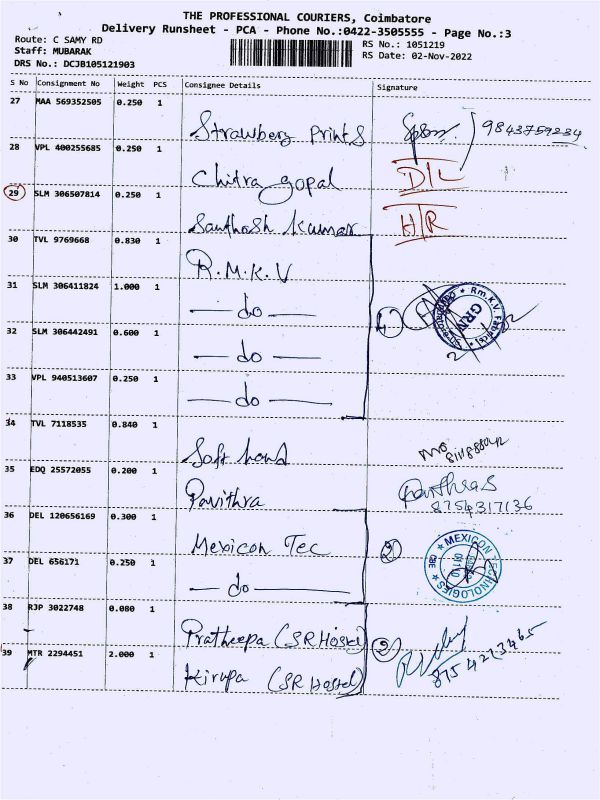 THE PROFESSIONAL COURIERS, Coimbatore
Delivery Runsheet - PCA - Phone No.:0422-3505555 - Page No.:3
Route: C SAMY RD
Staff: MUBARAK
DRS No.: DCJB105121903
RS No.: 1051219
RS Date: 02-Nov-2022
S No Consignment No Weight PCS Consignee Details Signature
27 MAA 569352505 0.250 1 Strawberg prints 9843759234
28 VPL 400255685 0.250 1 Chitra gopal D/L
29 SLM 306507814 0.250 1 Santhosh kumar H/R
30 TVL 9769668 0.830 1 R.M.K.V
31 SLM 306411824 1.000 1 — do —
Rm.K.V. Fabrics
GRN
32 SLM 306442491 0.600 1 — do —
33 VPL 940513607 0.250 1 — do —
34 TVL 7118535 0.840 1 Soft hand
35 EDQ 25572055 0.200 1 Pavithra
8754317136
36 DEL 120656169 0.300 1 Mexicon Tec 2
MEXICON TECHNOLOGIES CBE
37 DEL 656171 0.250 1 — do —
38 RJP 3022748 0.080 1 Pratheepa (SR Hostel) 2
39 MTR 2294451 2.000 1 Kirupa (SR Hostel) 8754213465